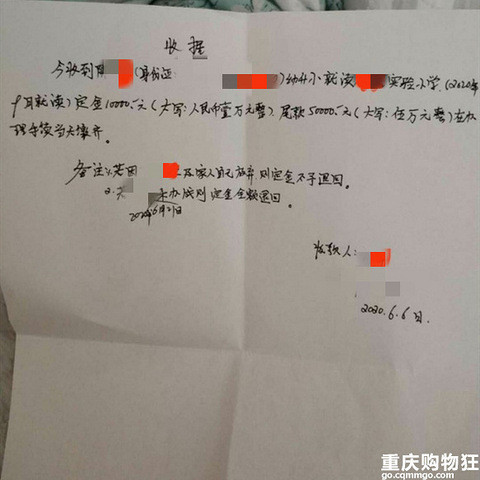 收据
今收到陈 (身份证: )幼升小就读 实验小学(2020年
9月就读)定金10000.元(大写:人民币壹万元整).尾款50000.元(大写:伍万元整)在办
理手续当天缴齐.
备注:1.若因 及家人自己放弃则定金不予退回。
2.若 未办成则定金全额退回。
2020年6月21日
收款人:
2020.6.6日.
重庆购物狂
go.cqmmgo.com